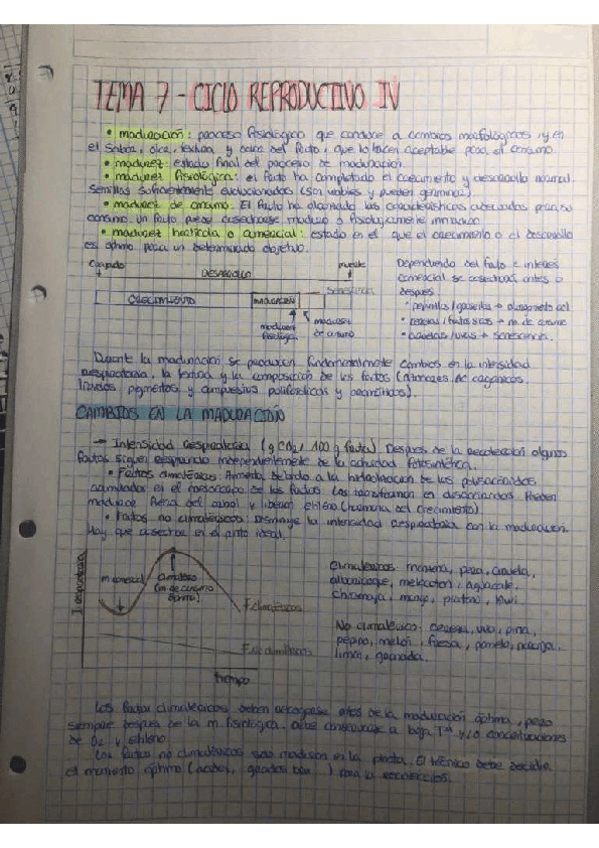 TEMA 7 - CICLO REPRODUCTIVO IV
• maduración: proceso fisiológico que conduce a cambios morfológicos y en
el sabor, olor, textura y color del fruto, que lo hacen aceptable para el consumo.
• madurez: estado final del proceso de maduración.
• madurez fisiológica: el fruto ha completado el crecimiento y desarrollo normal.
Semillas suficientemente evolucionadas (son viables y pueden germinar).
• madurez de consumo: El fruto ha alcanzado las características adecuadas para su
consumo. Un fruto puede cosecharse maduro o fisiológicamente inmaduro.
• madurez hortícola o comercial: estado en el que el crecimiento o el desarrollo
es óptimo para un determinado objetivo.
Cuajado
muerte
DESARROLLO
Senescencia
CRECIMIENTO
MADURACIÓN
madurez
fisiológ.
madurez
de consumo
Dependiendo del fruto e interés
comercial se cosechan antes o
después:
• pepinillos/guisantes → desarrollo
• → m. de consumo
• → senescencia.
Durante la maduración se producen fundamentalmente cambios en la intensidad
respiratoria, la textura y la composición de los frutos (
lípidos, pigmentos y compuestos polifenólicos y aromáticos).
CAMBIOS EN LA MADURACIÓN
→ Intensidad respiratoria (g CO2/100 g fruto). Después de la recolección algunos
frutos siguen respirando independientemente de la actividad fotosintética.
• Frutos climatéricos: Aumenta debido a la hidrolización de los polisacáridos
acumulados en el mesocarpo de los frutos. Los transforman en disacáridos. Pueden
madurar fuera del árbol y liberan etileno (hormona del crecimiento).
• Frutos no climatéricos: Disminuye la intensidad respiratoria con la maduración.
Hay que cosechar en el pto ideal.
I respiratoria
m comercial
climaterio
(m de consumo
óptimo)
F climatéricos
F no climatéricos
tiempo
Climatéricos: manzana, pera, ciruela,
albaricoque, melocotón, aguacate,
chirimoya, mango, plátano, kiwi.
No climatérico: cereza, uva, piña,
pepino, melón, fresa, pomelo, naranja,
limón, granada.
Los frutos climatéricos deben recogerse antes de la maduración óptima, pero
siempre después de la m. fisiológica. Debe conservarse a baja Tª y/o concentraciones
de O2 y etileno.
Los frutos no climatéricos solo maduran en la planta. El técnico debe decidir
el momento óptimo (azúcar, grados brix...) para la recolección.